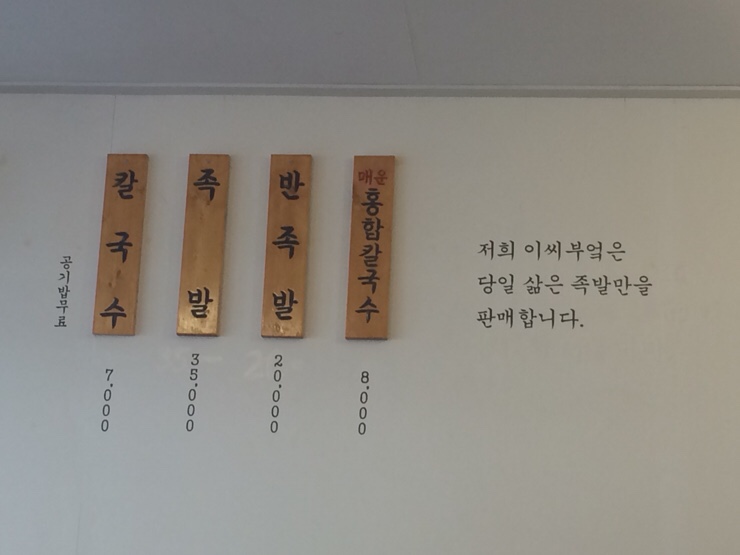 공기밥무료
칼국수
7,000
족발
35,000
반족발
20,000
매운
홍합칼국수
8,000
저희 이씨부엌은
당일 삶은 족발만을
판매합니다.